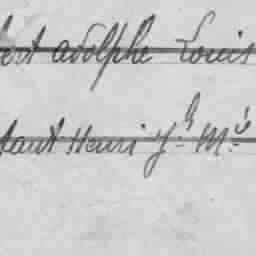 bert adolphe Louis
tant Henri Jh Mie